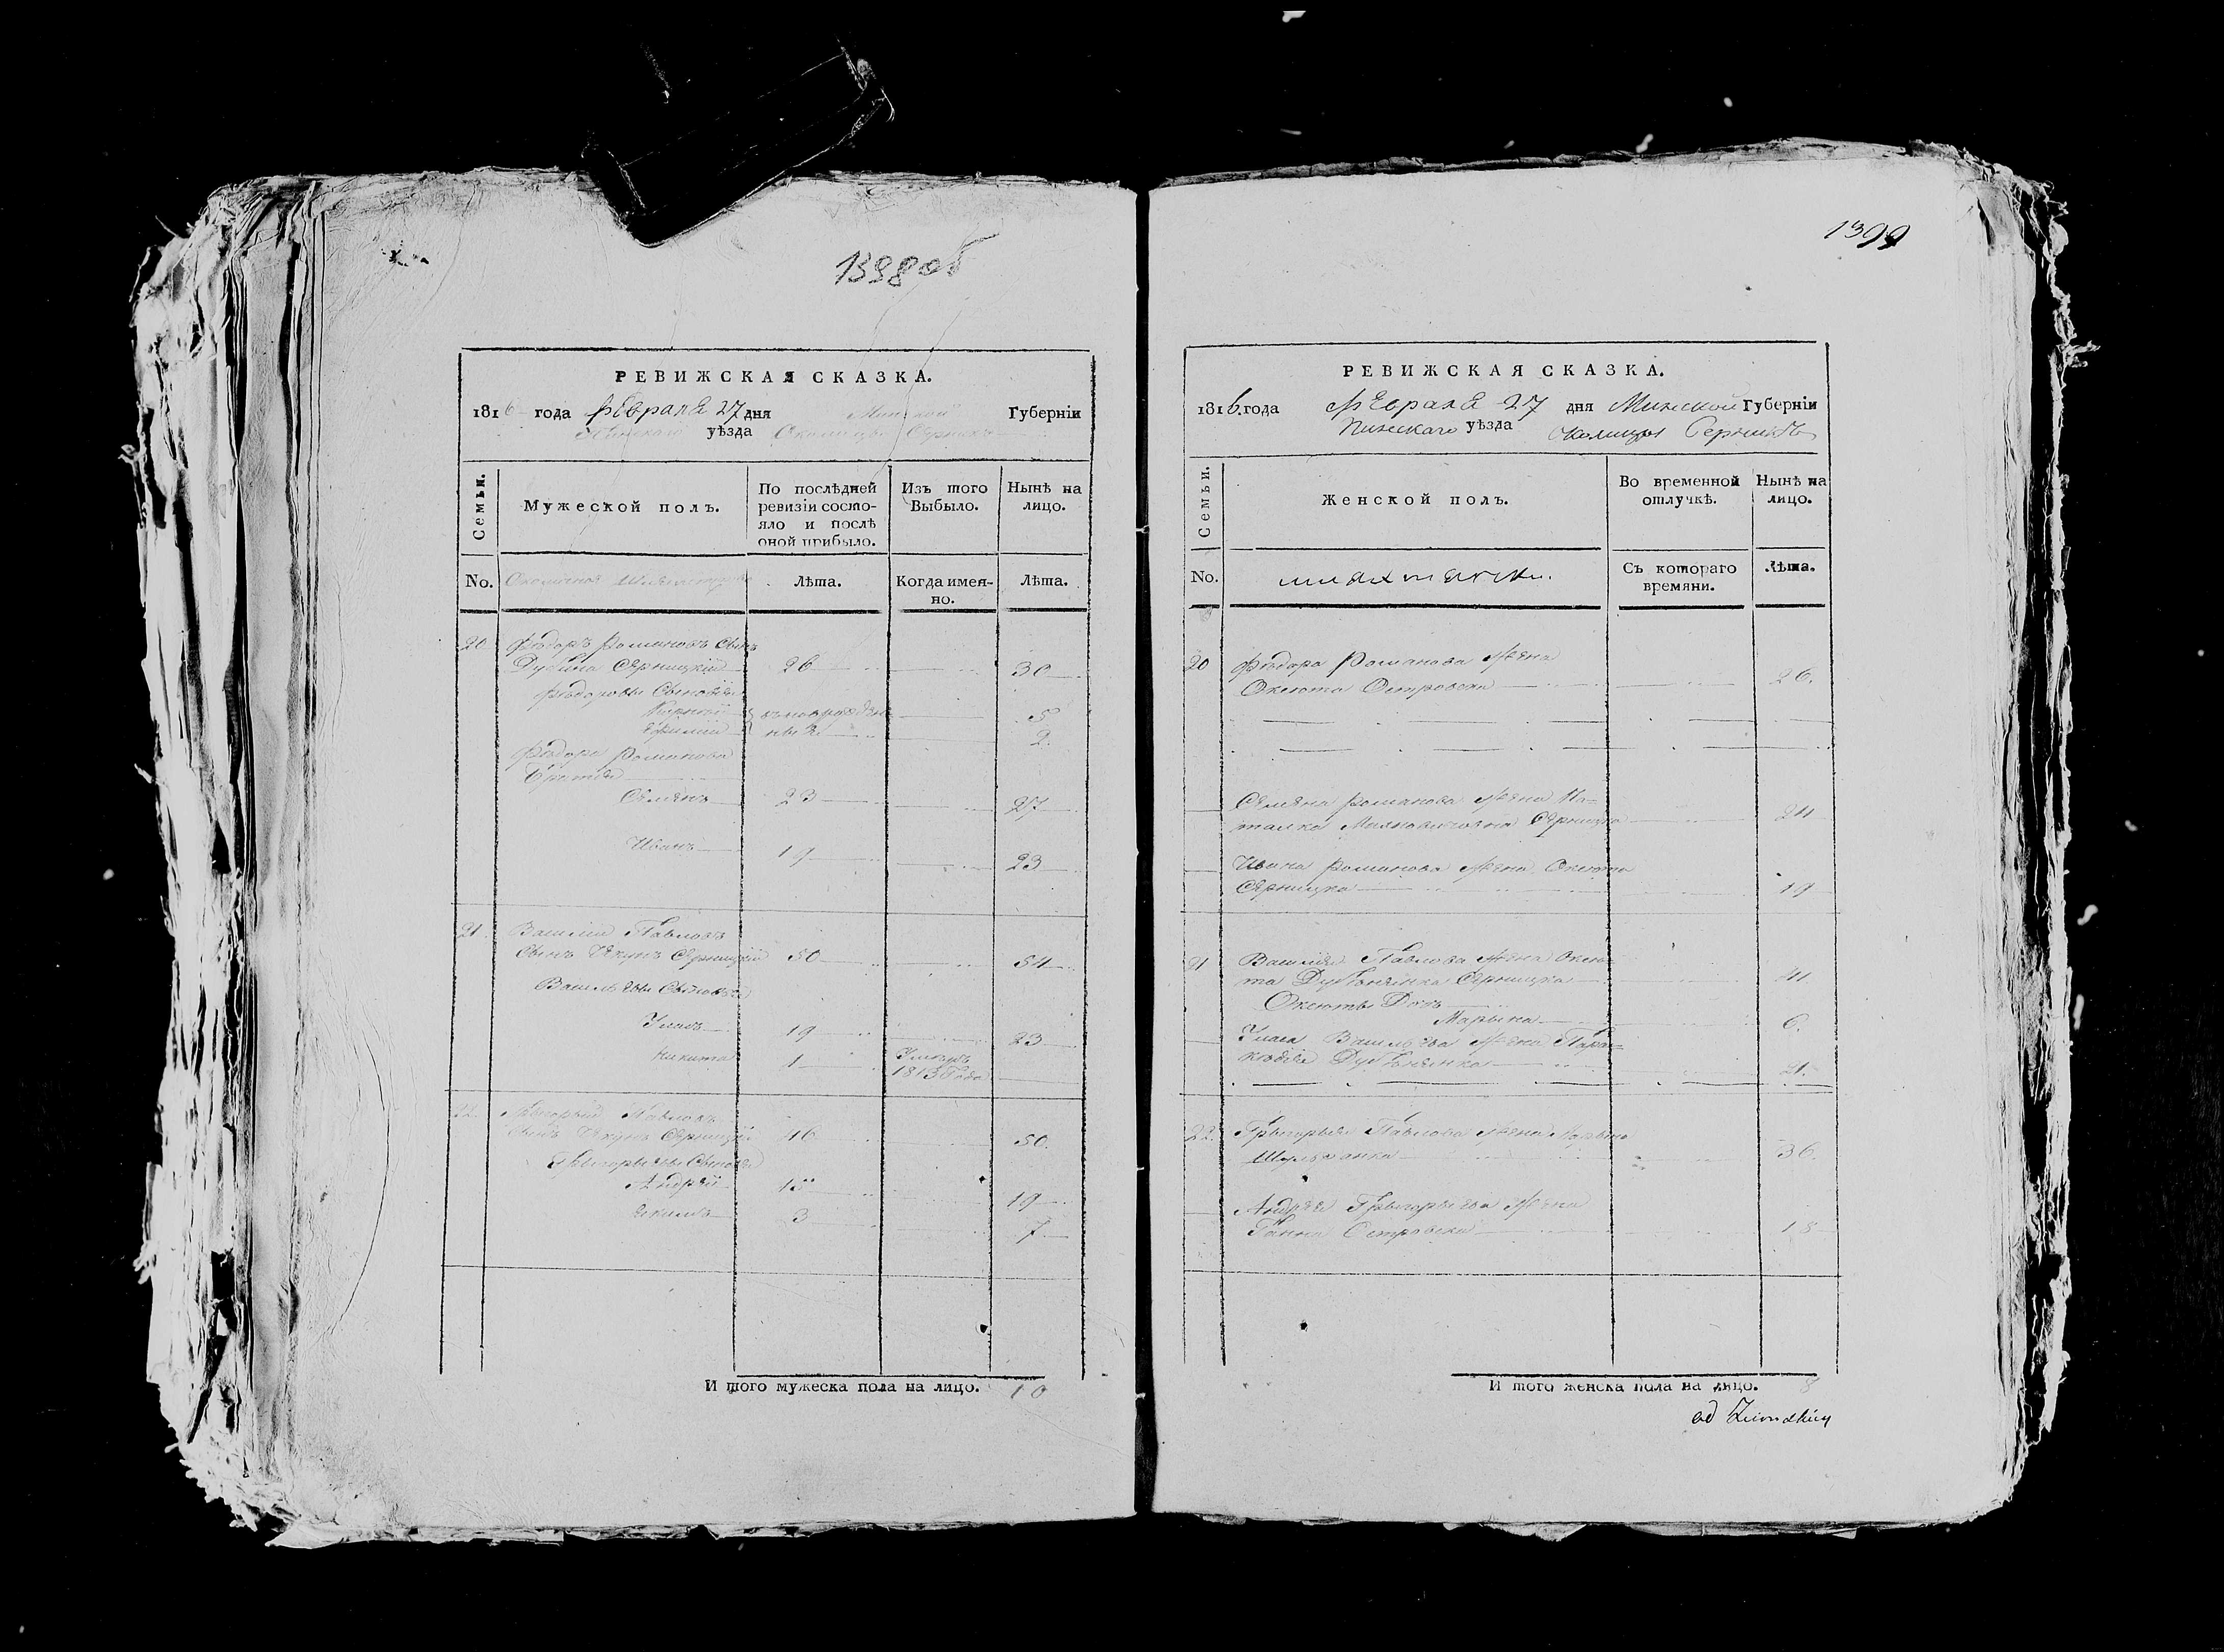 1398 об
РЕВИЖСКАЯ СКАЗКА.
1816 года Февраля 27 дня Минской Губернїи
Пинскаго уѣзда Околицы Серникъ
Семьи.
Мужеской полъ.
По послѣдней ревизїи состояло и послѣ оной прибыло.
Изъ того Выбыло.
Нынѣ на лицо.
No. Околичная Шляхта
Лѣта.
Когда имянно.
Лѣта.
20 Фѣодоръ Романовъ Сынъ
Дубина Серницкій 26 30
Фѣодоровы Сыновѣя
5
2.
Фѣодора Романова
Братья
Семенъ 23 27
Иванъ 19 23
21. Василій Павловъ
Сынъ Серницкій 50 54
Васильевы Сыновѣя
Уласъ 19 23
Никита 1 Умеръ
1813 Года
22. Грыгорый Павловъ
Сынъ Серницкій 46 50.
Грыгорьевы Сыновѣя
Андрей 15 19
Якимъ 3 7
И того мужеска пола на лицо. 10
1399
РЕВИЖСКАЯ СКАЗКА.
1816. года Февраля 27 дня Минской Губернїи
Пинскаго уѣзда Околицы Серникъ
Семьи.
Женской полъ.
Во временной отлучкѣ.
Нынѣ на лицо.
No. шляхтянки.
Съ котораго времяни.
Лѣта.
20 Фѣодора Романова Жена
Оксюта Островска 26.
Семена Романова Жена На-
талка Серницка 24
Ивана Романова Жена Оксюта
Серницка 19
21 Василія Павлова Жена Оксю-
та Серницка 41
Оксюты Дочь
Марына 6.
Уласа Васильева Жена Пара-
21.
22. Грыгорыя Павлова Жена
36.
Андрея Грыгорьева Жена
Ганна Островска 18
И того женска пола на лицо. 8